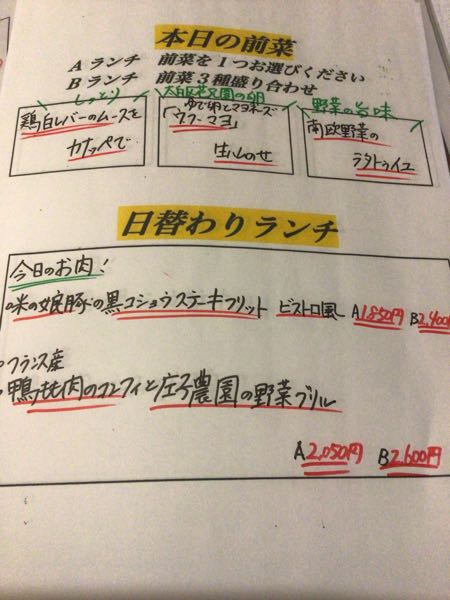 本日の前菜
Aランチ 前菜を1つお選びください
Bランチ 前菜3種盛り合わせ
しっとり
鶏白レバーのムースを
カナッペで
ゆで卵とマヨネーズ
「ウフ・マヨ」
生ハムのせ
野菜の旨味
南欧野菜の
ラタトゥイユ
日替わりランチ
今日のお肉!
米の娘豚の黒コショウステーキフリット ビストロ風 A1,850円 B2,400円
フランス産
鴨もも肉のコンフィと庄子農園の野菜グリル
A2,050円 B2,600円